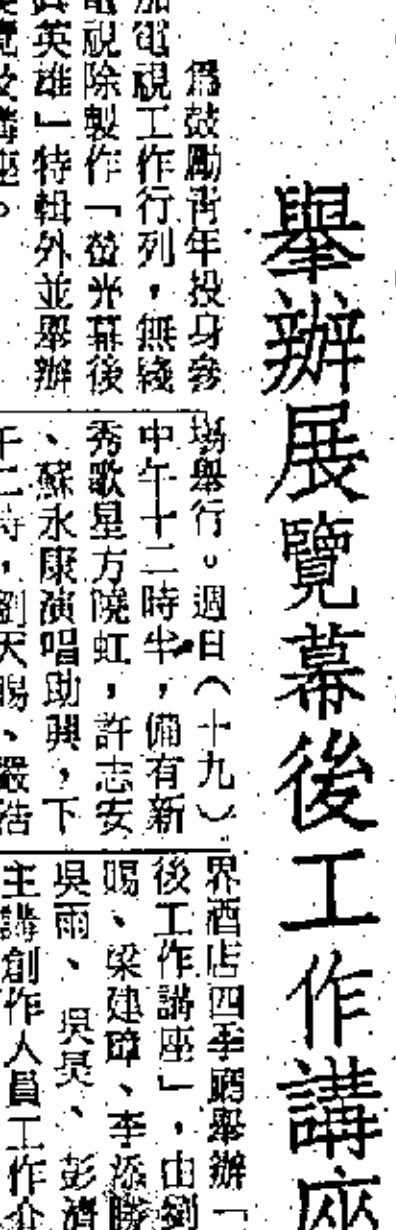 舉辦展覽幕後工作講座
為鼓勵青年投身參
加電視工作行列，無綫
電視除製作「螢光幕後
英雄」特輯外並舉辦
展覽及講座。
場舉行。週日（十九）
中午十二時半，備有新
秀歌星方曉虹，許志安
、蘇永康演唱助興，下
午二時，劉天賜、嚴浩
界酒店四季廳舉辦「
後工作講座」，由劉
賜、梁建璋、李添勝
吳雨、吳昊、彭
主講創作人員工作